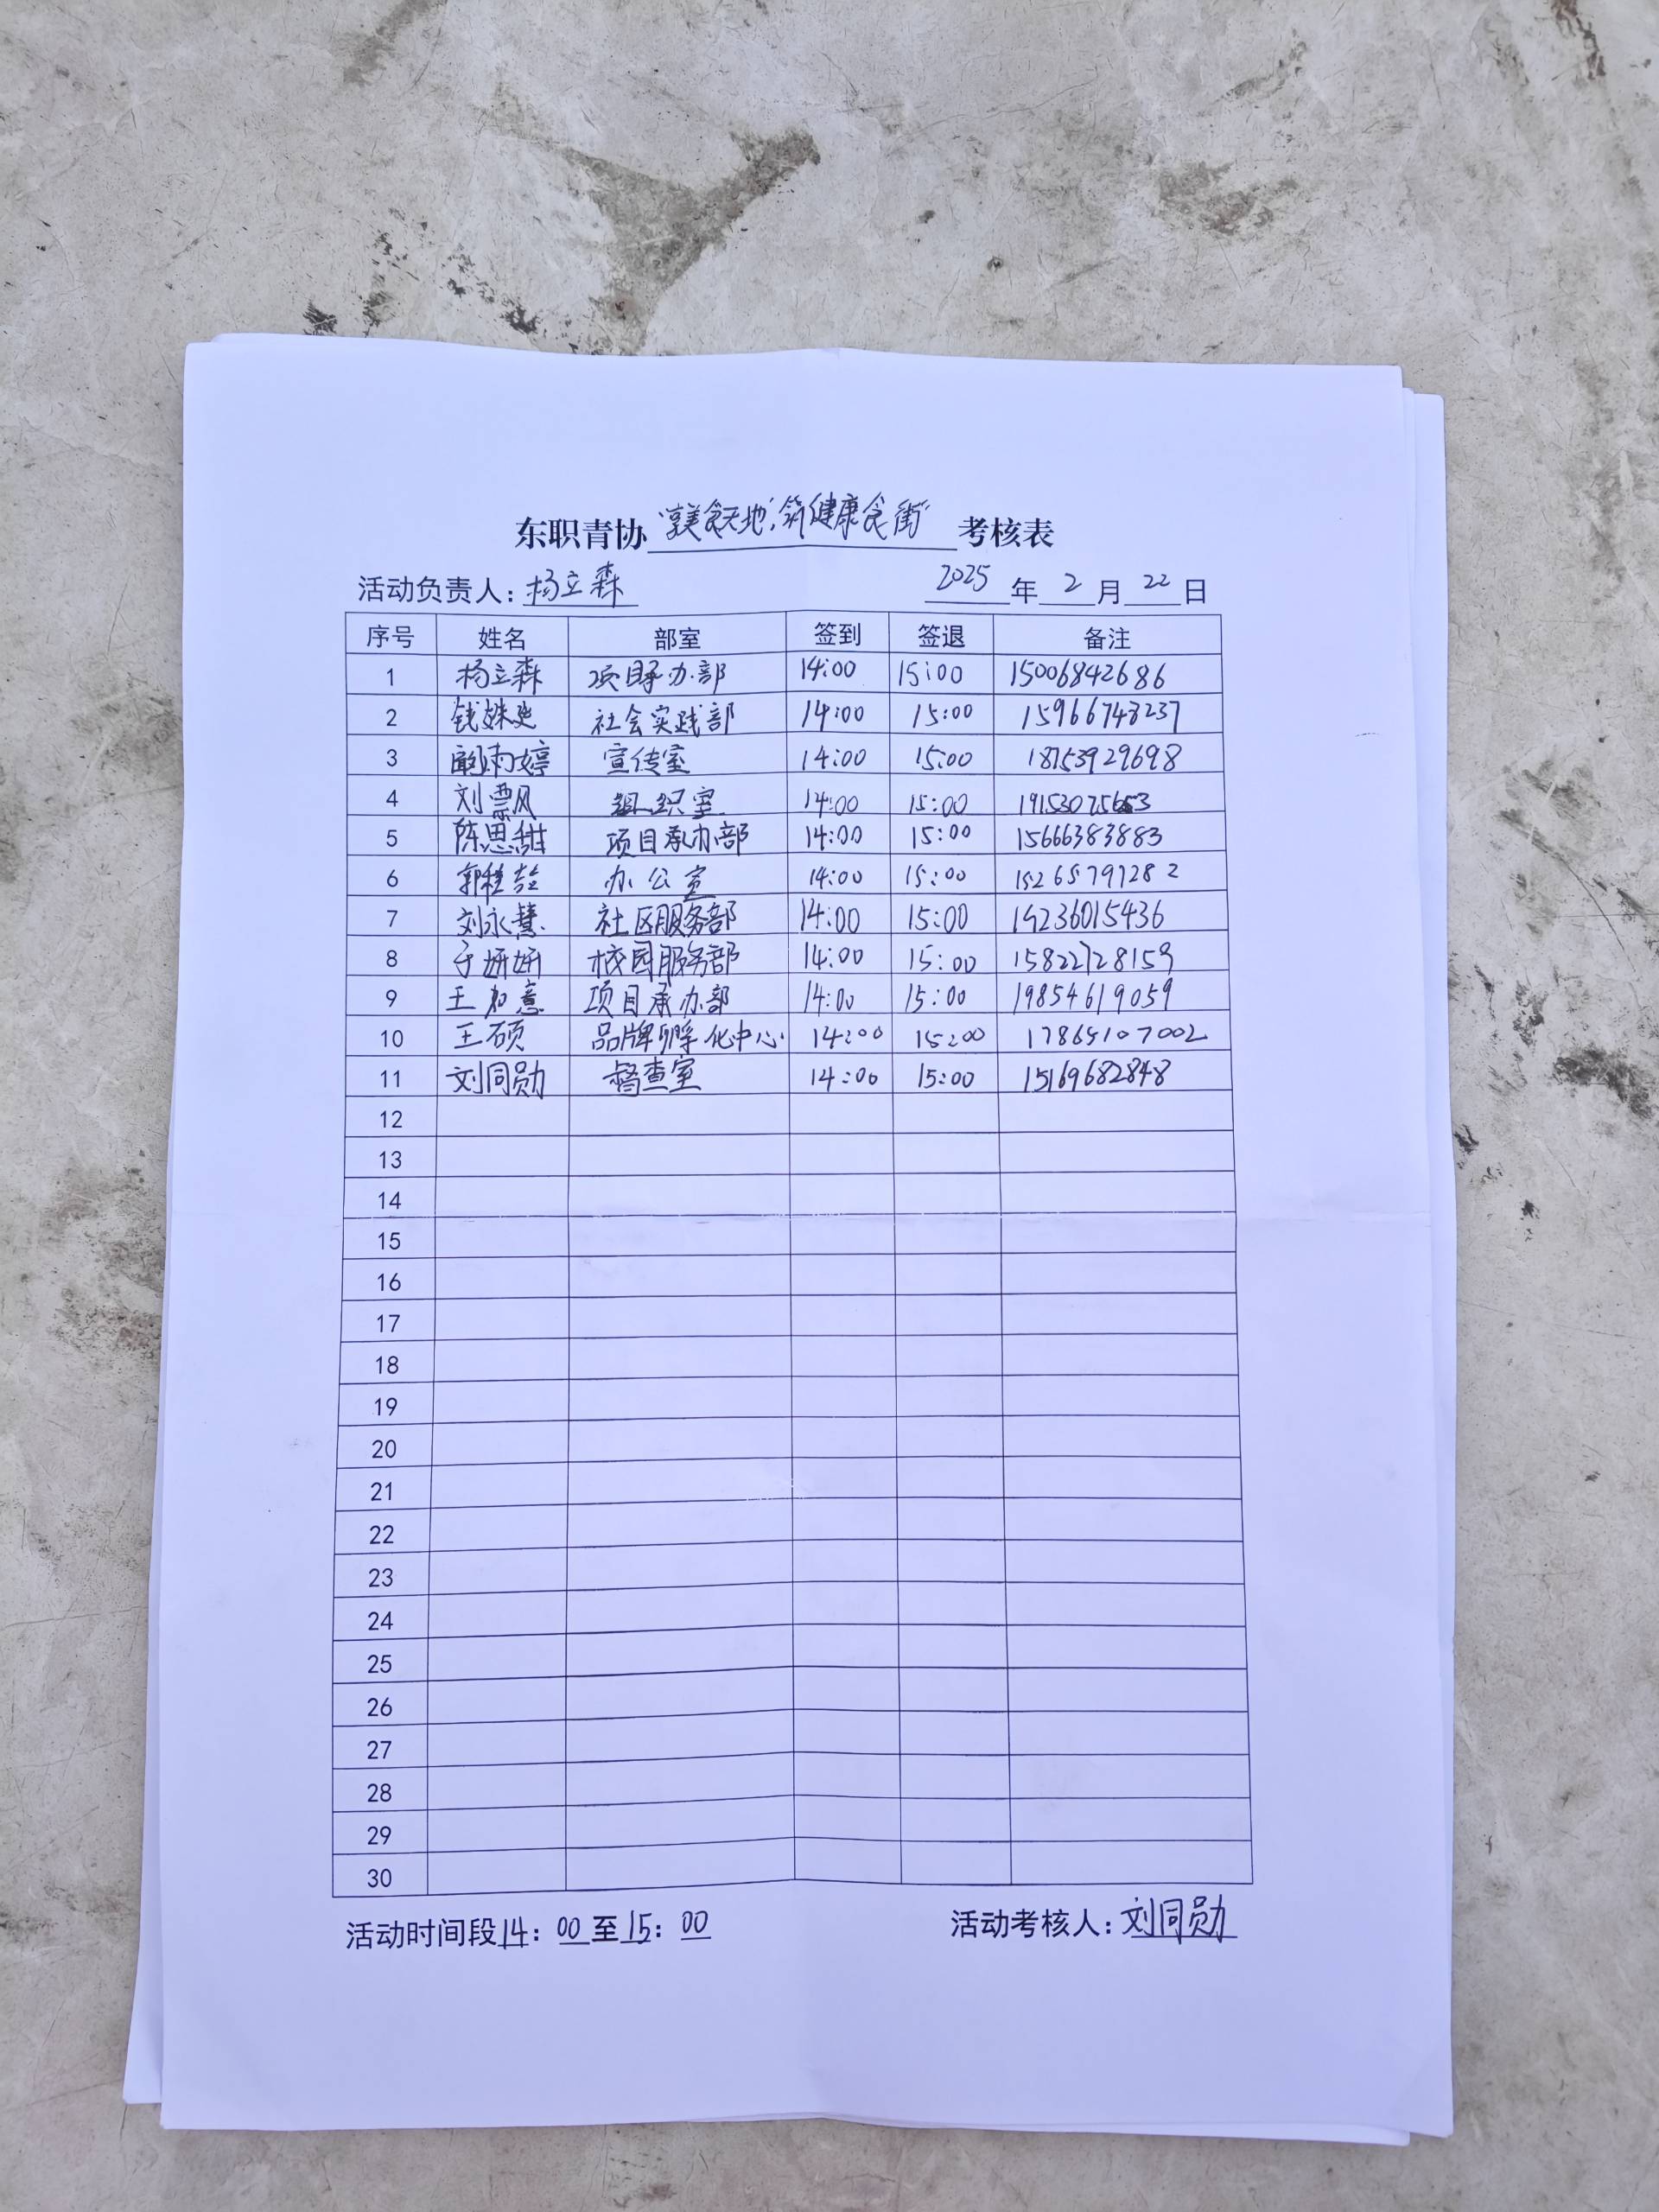 东职青协“享美食天地,筑健康食街”考核表
活动负责人：杨立森 2025年2月22日
序号 姓名 部室 签到 签退 备注
1 杨立森 项目承办部 14:00 15:00 15006842686
2 钱姝 社会实践部 14:00 15:00 15966748237
3 雨婷 宣传室 14:00 15:00 18753929698
4 刘飘风 组织室 14:00 15:00
5 陈思甜 项目承办部 14:00 15:00 15666383883
6 郭 办公室 14:00 15:00 15265797282
7 刘永慧 社区服务部 14:00 15:00 19236015436
8 于妍妍 校园服务部 14:00 15:00 15822728159
9 王如意 项目承办部 14:00 15:00 19854619059
10 王硕 品牌孵化中心 14:00 15:00 17865107002
11 刘同勋 督查室 14:00 15:00 15169682848
12
13
14
15
16
17
18
19
20
21
22
23
24
25
26
27
28
29
30
活动时间段14：00至15：00 活动考核人：刘同勋